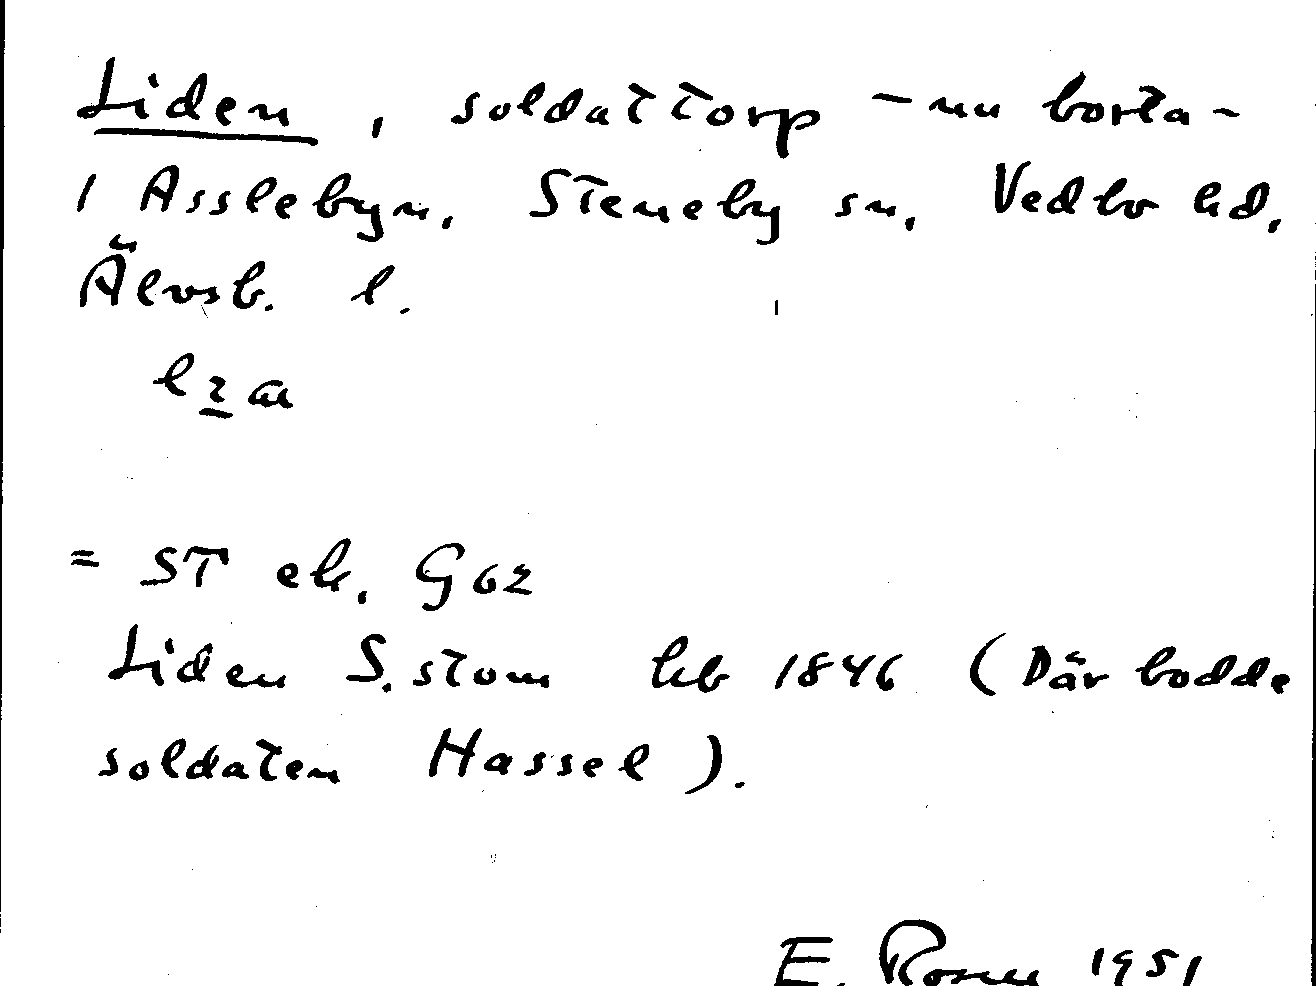 Liden, soldattorp – nu borta –
i Asslebyn, Steneby sn, Vedbo hd,
Älvsb. l.
= ST ek. G 62
Liden S. stom hfb 1846 (Där bodde
soldaten Hassel).
E. Rosen 1951